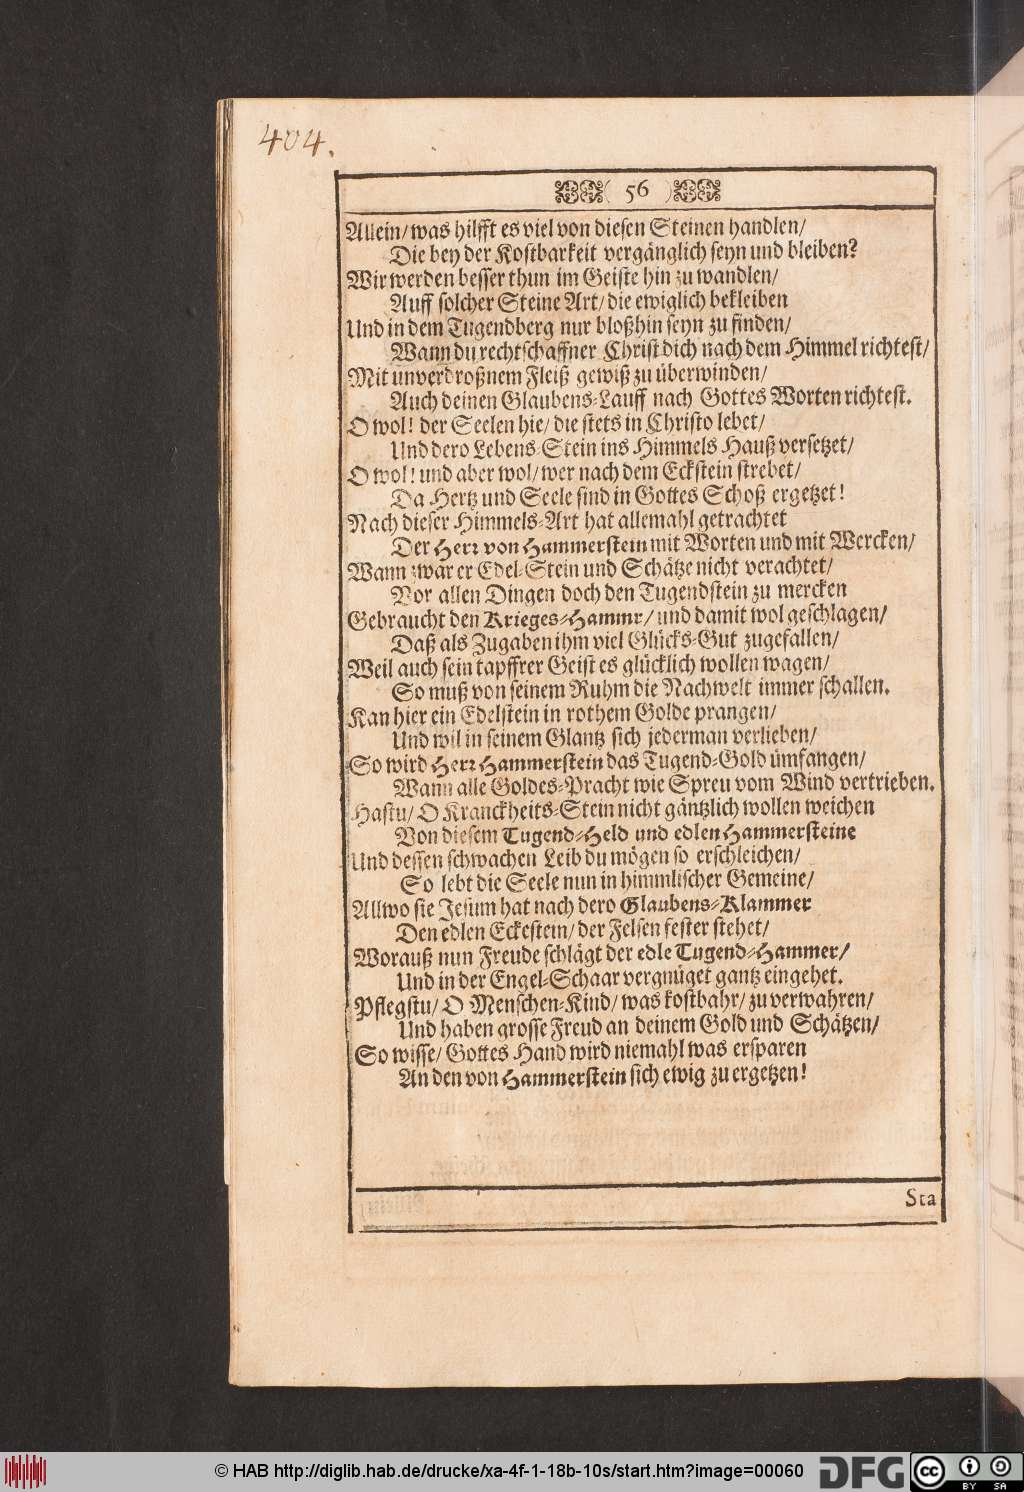 404.
( 56 )
Allein/ was hilfft es viel von diesen Steinen handlen/
Die bey der Kostbarkeit vergänglich seyn und bleiben?
Wir werden besser thun im Geiste hin zu wandlen/
Auff solcher Steine Art/ die ewiglich bekleiben
Und in dem Tugendberg nur bloßhin seyn zu finden/
Wann du rechtschaffner Christ dich nach dem Himmel richtest/
Mit unverdroßnem Fleiß gewiß zu überwinden/
Auch deinen Glaubens-Lauff nach Gottes Worten richtest.
O wol! der Seelen hie/ die stets in Christo lebet/
Und dero Lebens-Stein ins Himmels Hauß versetzet/
O wol! und aber wol/ wer nach dem Eckstein strebet/
Da Hertz und Seele sind in Gottes Schoß ergetzet!
Nach dieser Himmels-Art hat allemahl getrachtet
Der Herr von Hammerstein mit Worten und mit Wercken/
Wann zwar er Edel-Stein und Schätze nicht verachtet/
Vor allen Dingen doch den Tugendstein zu mercken
Gebraucht den Krieges-Hammr/ und damit wol geschlagen/
Daß als Zugaben ihm viel Glücks-Gut zugefallen/
Weil auch sein tapffrer Geist es glücklich wollen wagen/
So muß von seinem Ruhm die Nachwelt immer schallen.
Kan hier ein Edelstein in rothem Golde prangen/
Und wil in seinem Glantz sich jederman verlieben/
So wird Herr Hammerstein das Tugend-Gold ümfangen/
Wann alle Goldes-Pracht wie Spreu vom Wind vertrieben.
Hastu/ O Kranckheits-Stein nicht gäntzlich wollen weichen
Von diesem Tugend-Held und edlen Hammersteine
Und dessen schwachen Leib du mögen so erschleichen/
So lebt die Seele nun in himmlischer Gemeine/
Allwo sie Jesum hat nach dero Glaubens-Klammer
Den edlen Eckestein/ der Felsen fester stehet/
Worauß nun Freude schlägt der edle Tugend-Hammer/
Und in der Engel-Schaar vergnüget gantz eingehet.
Pflegstu/ O Menschen-Kind/ was kostbahr/ zu verwahren/
Und haben grosse Freud an deinem Gold und Schätzen/
So wisse/ Gottes Hand wird niemahl was ersparen
An den von Hammerstein sich ewig zu ergetzen!
Sta
© HAB http://diglib.hab.de/drucke/xa-4f-1-18b-10s/start.htm?image=00060
DFG
cc BY SA